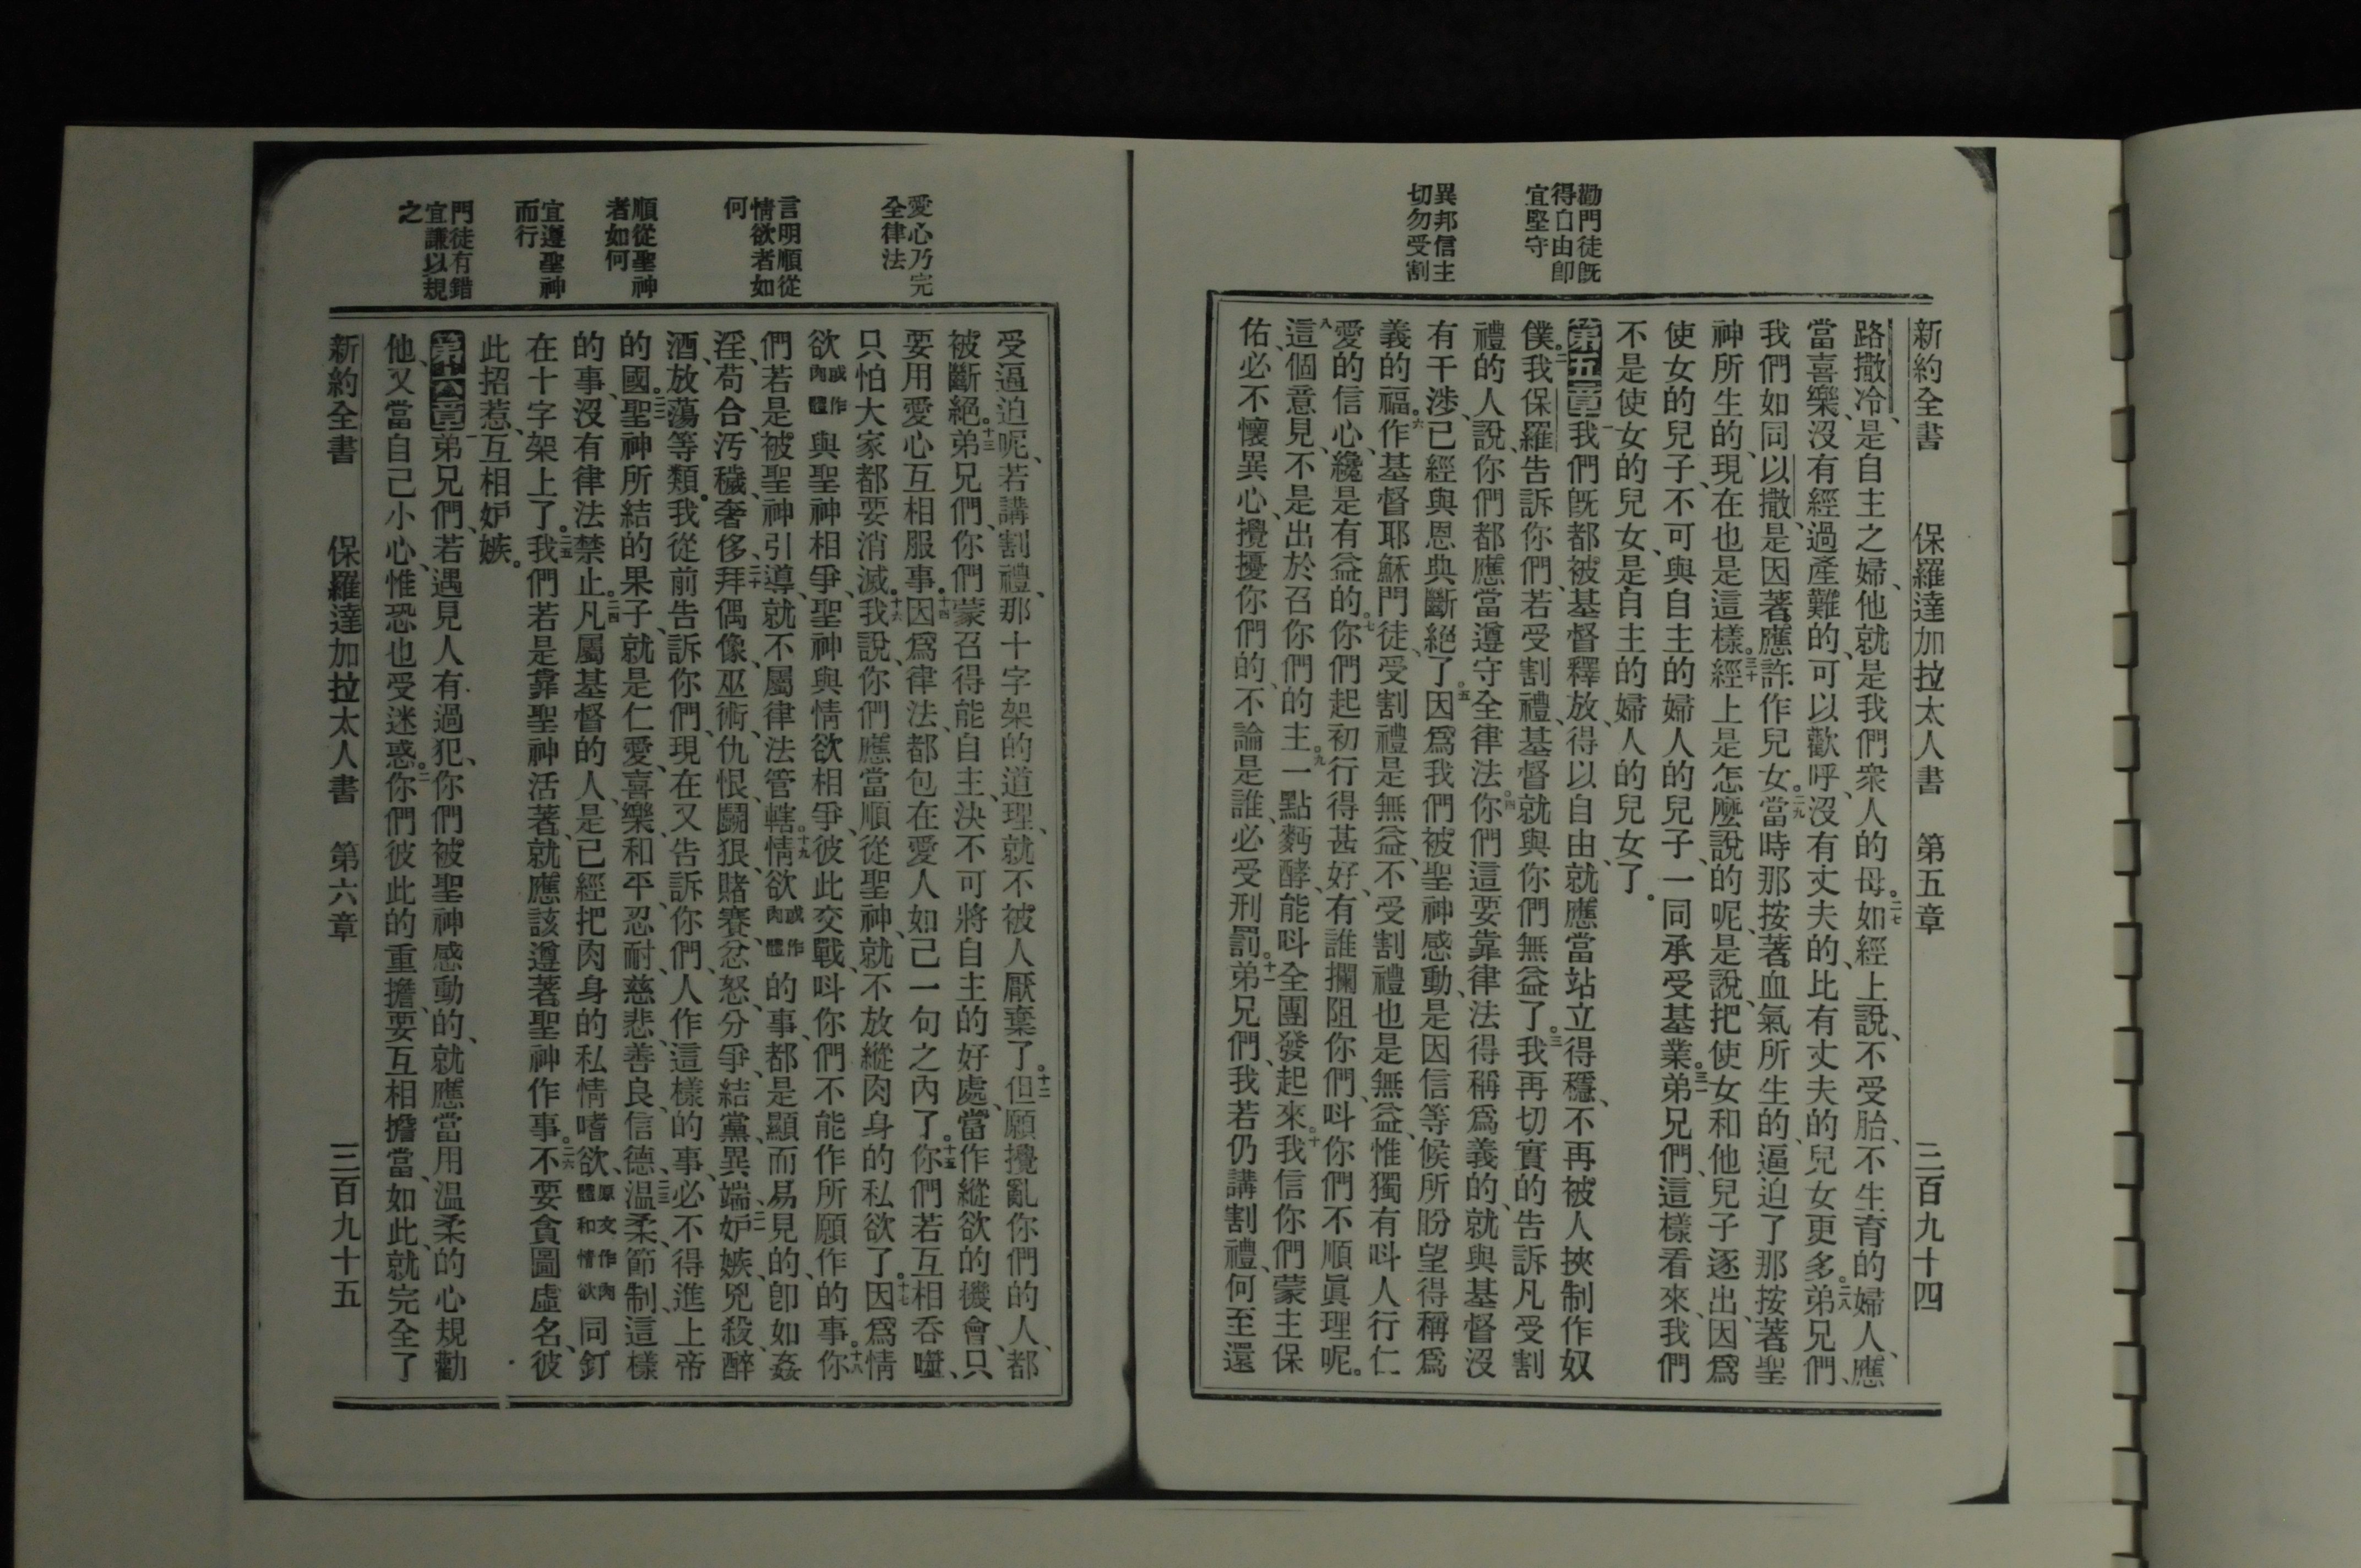 新約全書 保羅達加拉太人書 第五章 三百九十四
勸門徒旣
得自由卽
宜堅守
異邦信主
切勿受割
路撒冷、是自主之婦、他就是我們衆人的母。二七如經上說、不受胎、不生育的婦人、應
當喜樂、沒有經過產難的、可以歡呼、沒有丈夫的、比有丈夫的兒女更多。二八弟兄們、
我們如同以撒、是因著應許作兒女。二九當時那按著血氣所生的、逼迫了那按著聖
神所生的、現在也是這樣。三十經上是怎麼說的呢、是說、把使女和他兒子逐出、因爲
使女的兒子、不可與自主的婦人的兒子、一同承受基業。三一弟兄們、這樣看來、我們
不是使女的兒女、是自主的婦人的兒女了。
第五章一我們旣都被基督釋放、得以自由、就應當站立得穩、不再被人挾制作奴
僕。二我保羅告訴你們、若受割禮、基督就與你們無益了。三我再切實的告訴凡受割
禮的人說、你們都應當遵守全律法。四你們這要靠律法得稱爲義的、就與基督沒
有干涉、已經與恩典斷絕了。五因爲我們被聖神感動、是因信等候所盼望得稱爲
義的福。六作基督耶穌門徒、受割禮是無益、不受割禮也是無益、惟獨有呌人行仁
愛的信心、纔是有益的。七你們起初行得甚好、有誰攔阻你們、呌你們不順眞理呢。
八這個意見、不是出於召你們的主。九一點麪酵、能呌全團發起來。十我信你們蒙主保
佑、必不懷異心、攪擾你們的、不論是誰、必受刑罰。十一弟兄們、我若仍講割禮、何至還
愛心乃完
全律法
言明順從
情欲者如
何
順從聖神
者如何
宜遵聖神
而行
門徒有錯
宜謙以規
之
受逼迫呢、若講割禮、那十字架的道理、就不被人厭棄了。十二但願攪亂你們的人、都
被斷絕。十三弟兄們、你們蒙召得能自主、決不可將自主的好處、當作縱欲的機會、只
要用愛心互相服事。十四因爲律法、都包在愛人如己一句之內了。十五你們若互相吞噬、
只怕大家都要消滅。十六我說、你們應當順從聖神、就不放縱肉身的私欲了。十七因爲情
欲或作肉體與聖神相爭、聖神與情欲相爭、彼此交戰、呌你們不能作所願作的事。十八你
們若是被聖神引導、就不屬律法管轄。十九情欲或作肉體的事、都是顯而易見的、卽如姦
淫、苟合、汚穢、奢侈、二十拜偶像、巫術、仇恨、鬬狠、賭賽、忿怒、分爭、結黨、異端、二一妒嫉、兇殺、醉
酒、放蕩等類。我從前告訴你們、現在又告訴你們、人作這樣的事、必不得進上帝
的國。二二聖神所結的果子、就是仁愛、喜樂、和平、忍耐、慈悲、善良、信德、二三温柔、節制、這樣
的事、沒有律法禁止。二四凡屬基督的人、是已經把肉身的私情嗜欲、原文作肉體和情欲同釘
在十字架上了。二五我們若是靠聖神活著、就應該遵著聖神作事。二六不要貪圖虛名、彼
此招惹、互相妒嫉。
第六章一弟兄們、若遇見人有過犯、你們被聖神感動的、就應當用温柔的心規勸
他、又當自己小心、惟恐也受迷惑。二你們彼此的重擔、要互相擔當、如此、就完全了
新約全書 保羅達加拉太人書 第六章 三百九十五